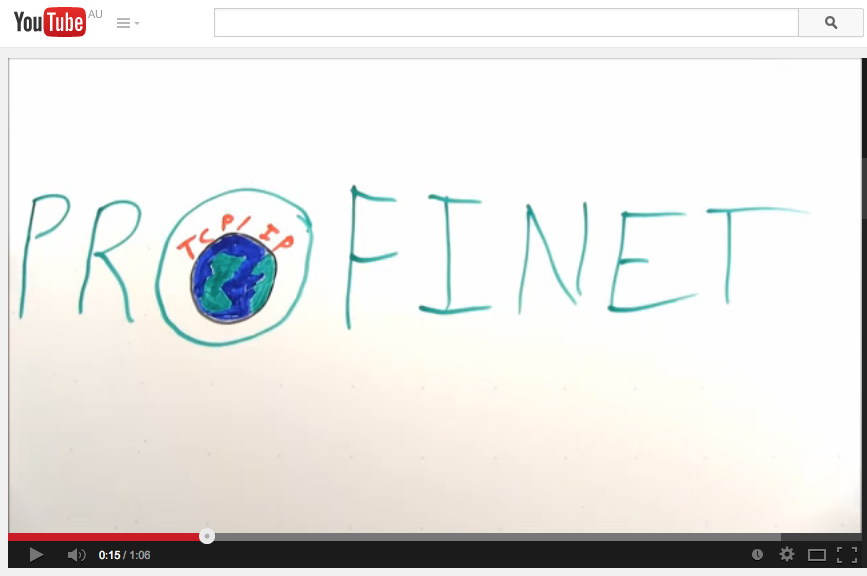 YouTube AU
PROFINET
TCP/IP
0:15 / 1:06